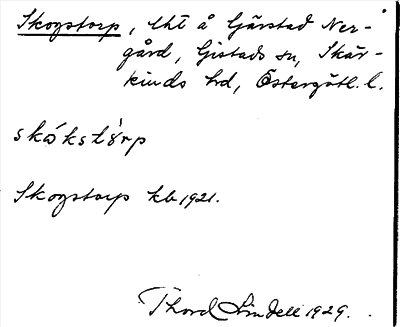 Skogstorp, lht å Gärstad Ner-
gård, Gistads sn, Skär-
kinds hd, Östergötl. l.
skákstòrp
Skogstorp kb 1921.
Thord Lindell 1929.